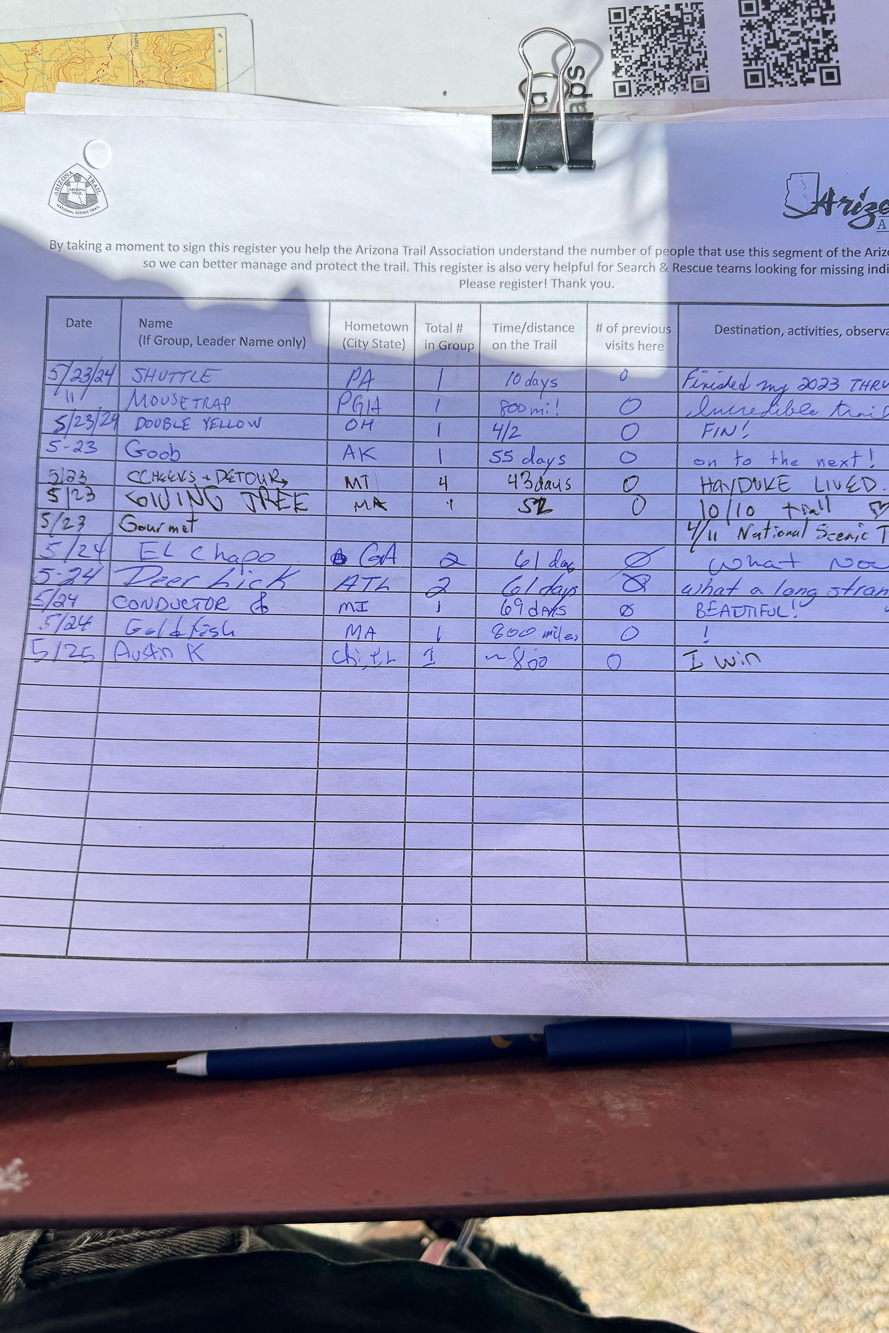 ARIZONA TRAIL
Arizo
By taking a moment to sign this register you help the Arizona Trail Association understand the number of people that use this segment of the Ariz
so we can better manage and protect the trail. This register is also very helpful for Search & Rescue teams looking for missing indi
Please register! Thank you.
Date Name (If Group, Leader Name only) Hometown (City State) Total # in Group Time/distance on the Trail # of previous visits here Destination, activities, observa
5/23/24 SHUTTLE PA 1 10 days 0 Finished my 2023 THRU
" MOUSETRAP PGH 1 800 mi! 0 Incredible trail
5/23/24 DOUBLE YELLOW OH 1 4/2 0 FIN!
5-23 Goob AK 1 55 days 0 on to the next!
5/23 CCHEEKS + DETOUR MT 4 43 days 0 HAYDUKE LIVED.
5/23 GIVING TREE MA 1 52 0 10/10 trail ♡
5/23 Gourmet 4/11 National Scenic T
5/24 EL Chapo GA 2 61 day 0 What Now
5-24 Deer Lick ATL 2 61 days 0 what a long stran
5/24 CONDUCTOR MI 1 69 DAYS 0 BEAUTIFUL!
5/24 Goldfish MA 1 800 miles 0 !
5/25 Austin K Chi, IL 1 ~800 0 I win